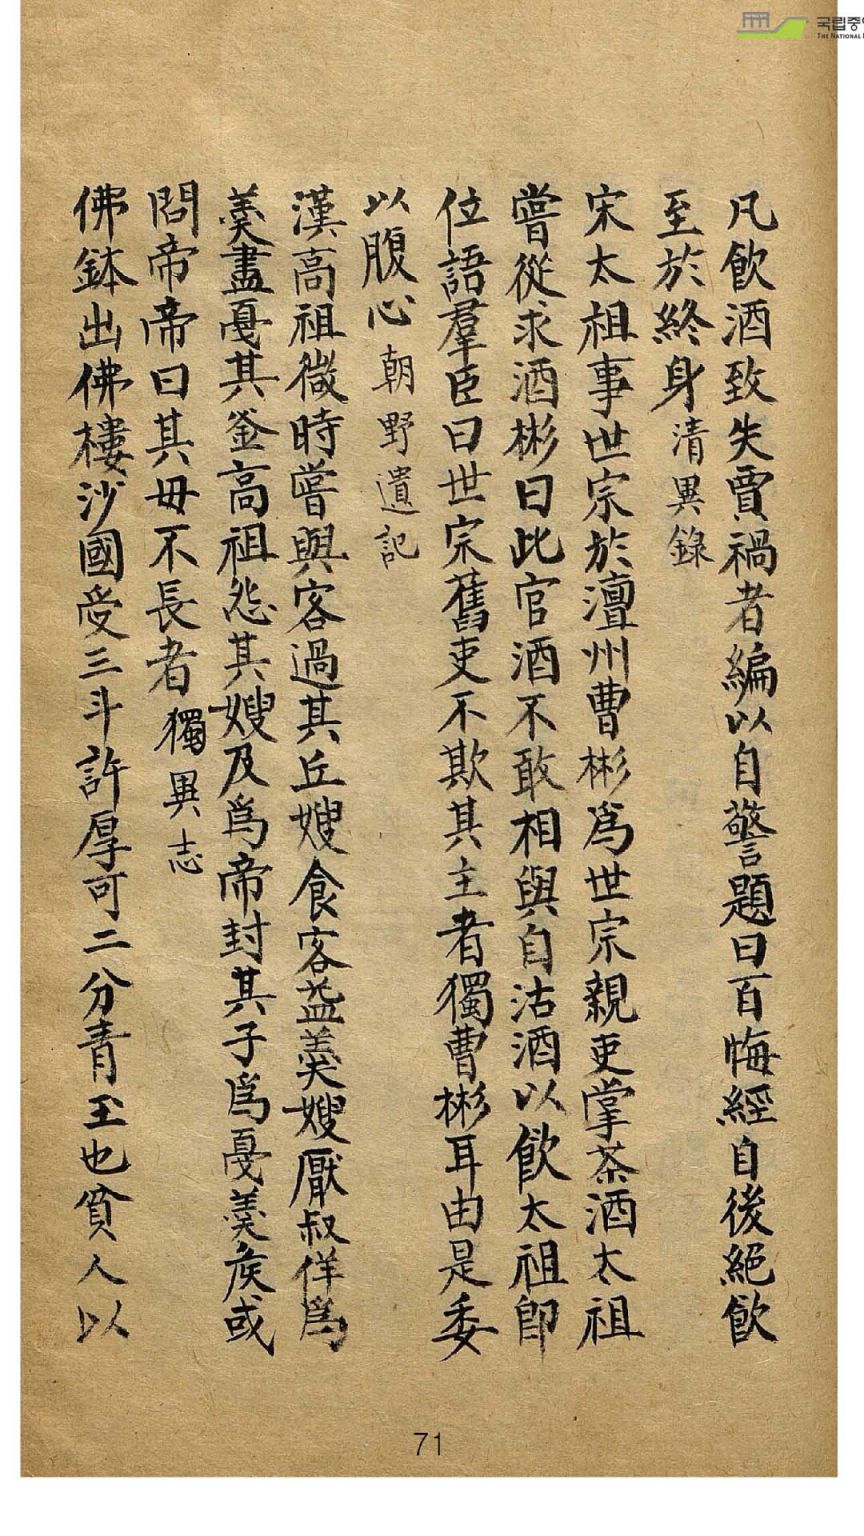 凡飮酒致失賈禍者編以自警題曰百悔經自後絕飮
至於終身 清異錄
宋太祖事世宗於澶州曹彬爲世宗親吏掌茶酒太祖
嘗從求酒彬曰此官酒不敢相與自沽酒以飮太祖卽
位語羣臣曰世宗舊吏不欺其主者獨曹彬耳由是委
以腹心 朝野遺記
漢高祖微時嘗與客過其丘嫂食客益羹嫂厭叔佯爲
羹盡戛其釜高祖怨其嫂及爲帝封其子爲戛羹侯或
問帝帝曰其毋不長者 獨異志
佛鉢出佛樓沙國受三斗許厚可二分靑玉也貧人以
71
국립중앙
THE NATIONAL